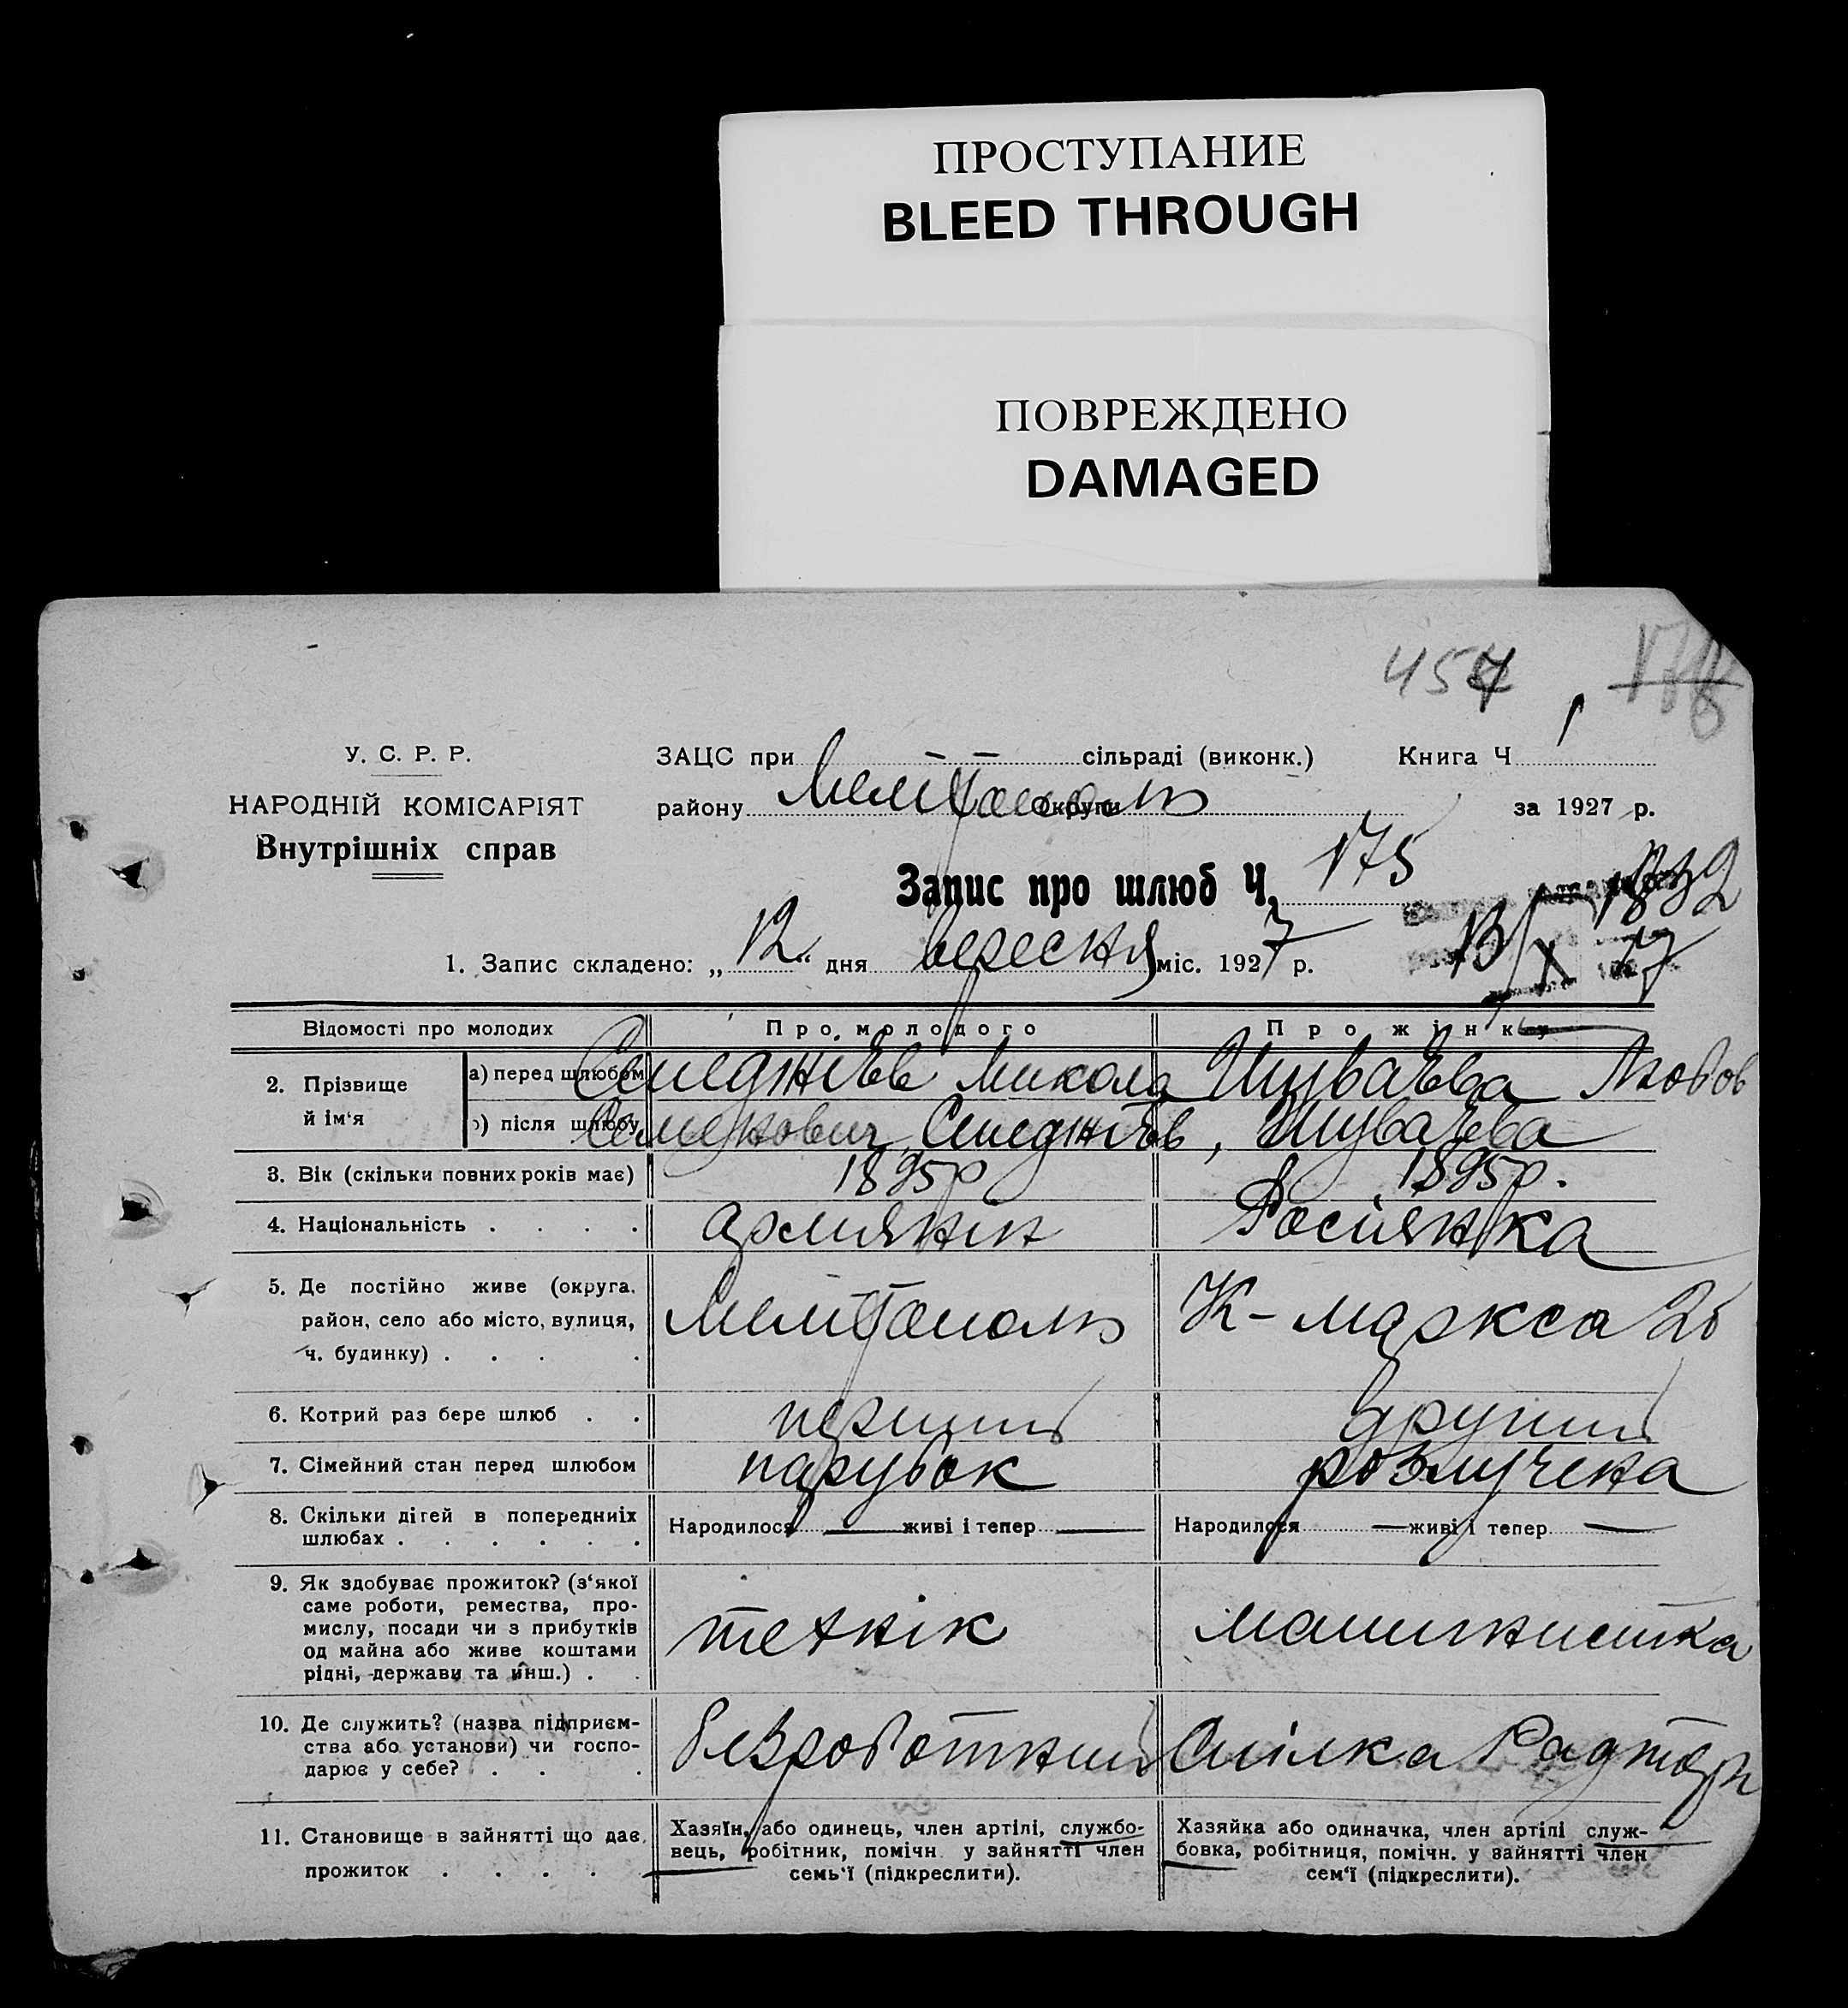 ПРОСТУПАНИЕ
BLEED THROUGH
ПОВРЕЖДЕНО
DAMAGED
457
У. С. Р. Р.
НАРОДНІЙ КОМІСАРІЯТ
Внутрішніх справ
ЗАЦС при сільраді (виконк.) Книга Ч 1
району Мелітополь округи за 1927 р.
Запис про шлюб Ч. 175
1832
1. Запис складено: „12“ дня вересня міс. 1927 р.
13/X 27
Відомості про молодих Про молодого Про жінку
2. Прізвище й ім‘я
а) перед шлюбом Микола Шуваєва Любов
б) після шлюбу Семенович, Шуваєва
3. Вік (скільки повних років має) 1895р 1895р.
4. Національність . . . . армянін Росіянка
5. Де постійно живе (округа,
район, село або місто, вулиця,
ч. будинку) . . . .
Мелітополь К-Маркса 26
6. Котрий раз бере шлюб . . перший другий
7. Сімейний стан перед шлюбом парубок розлучена
8. Скільки дітей в попередніх
шлюбах . . . . . .
Народилося — живі і тепер — Народилося — живі і тепер —
9. Як здобуває прожиток? (з‘якої
саме роботи, ремества, про-
мислу, посади чи з прибутків
од майна або живе коштами
рідні, держави та инш.) . .
технік машиністка
10. Де служить? (назва підприєм-
ства або установи) чи госпо-
дарює у себе? . . .
безработний Спілка Радторг
11. Становище в зайнятті що дає
прожиток . . . .
Хазяїн, або одинець, член артілі, службо-
вець, робітник, помічн. у зайнятті член
семь‘ї (підкреслити).
Хазяйка або одиначка, член артілі служ-
бовка, робітниця, помічн. у зайнятті член
сем‘ї (підкреслити).